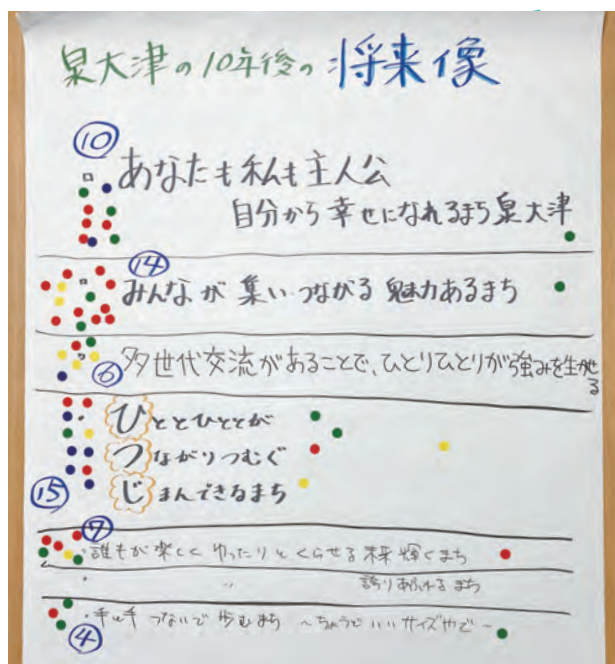 泉大津の10年後の将来像
⑩
あなたも私も主人公
自分から幸せになれるまち泉大津
⑭
みんなが集い・つながる魅力あるまち
⑥
多世代交流があることで、ひとりひとりが強みを生かせ
る
ひととひととが
つながりつむぐ
じまんできるまち
⑮
⑦
・誰もが楽しくゆったりとくらせる未来輝くまち
・ 〃 誇りあふれるまち
・手と手つないで歩むまち ～ちょうどいいサイズやで～
④